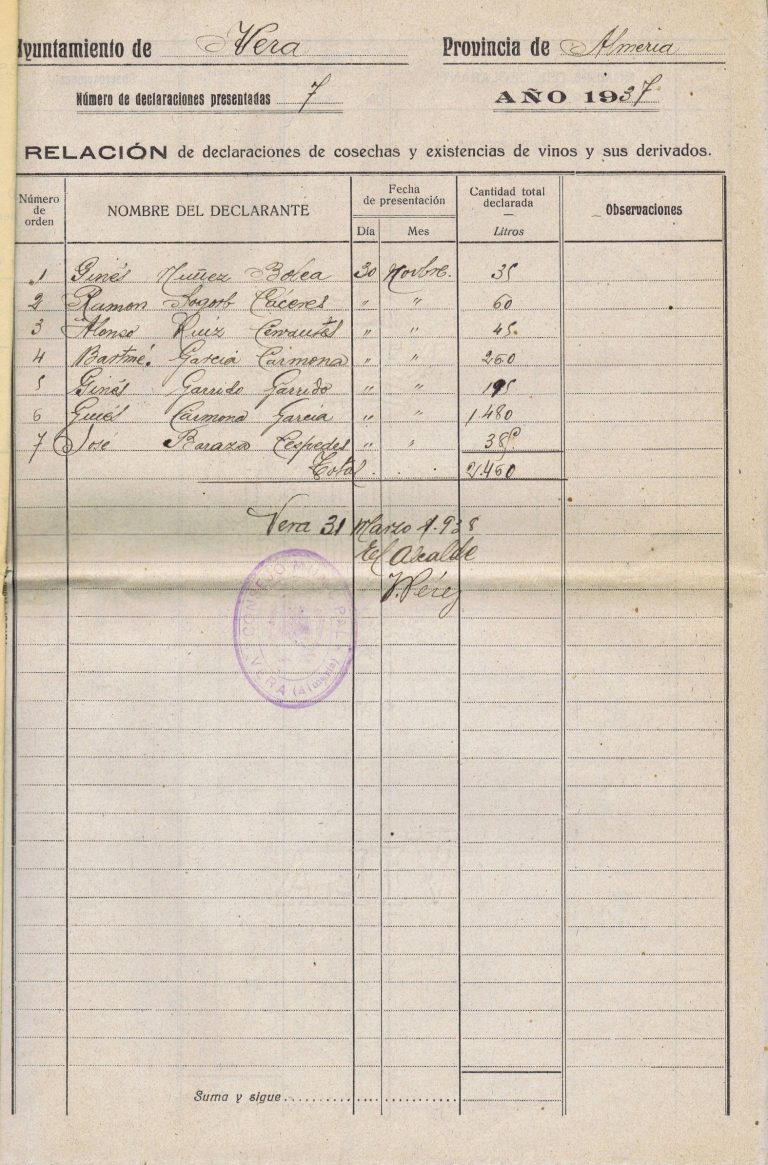 Ayuntamiento de Vera Provincia de Almeria
Número de declaraciones presentadas 7 AÑO 1937
RELACIÓN de declaraciones de cosechas y existencias de vinos y sus derivados.
Número de orden NOMBRE DEL DECLARANTE Fecha de presentación Día Mes Cantidad total declarada — Litros Observaciones
1 Ginés Nuñez Bolea 30 Novbre. 35
2 Ramon Sogorb Cáceres " " 60
3 Alonso Ruiz Cervantes " " 45
4 Bartmé. Garcia Carmona " " 260
5 Ginés Garrido Garrido " " 195
6 Ginés Carmona Garcia " " 1.480
7 José Baraza Cespedes " " 385
Total . . . . 2.460
Vera 31 Marzo 1.938
El Alcalde
Pérez
CONSEJO MUNICIPAL
VERA (Almería)
Suma y sigue